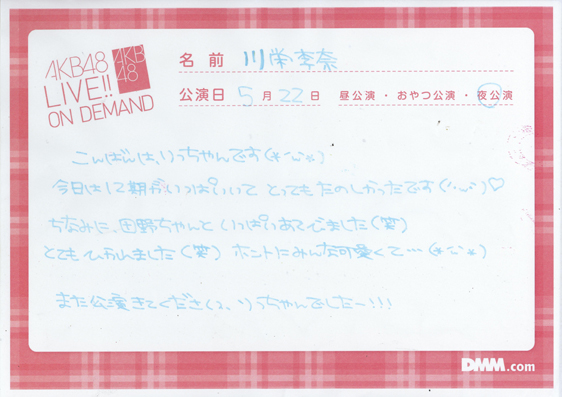 AKB48
LIVE!!
ON DEMAND
AKB
48
名前 川栄李奈
公演日 5月22日 昼公演・おやつ公演・夜公演
こんばんは、りっちゃんです(*´∪`*)
今日は12期がいっぱいいて とってもたのしかったです(´∪`)♡
ちなみに、田野ちゃんと いっぱいあてしました(笑)
とても ひかれました(笑) ホントにみんな可愛くて…(*´∪`*)
また公演きてくださいっ、りっちゃんでしたー!!!
DMM.com